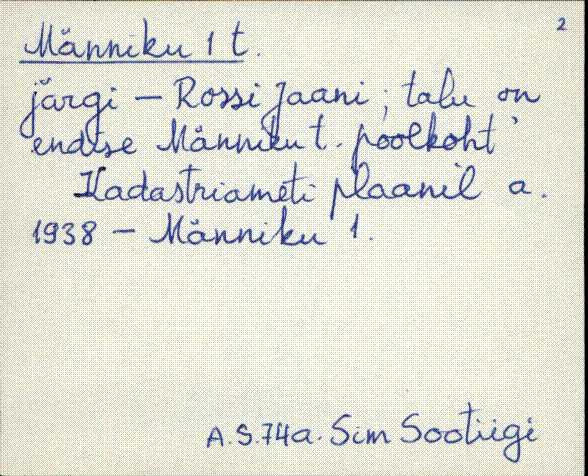 2
Männiku 1 t.
järgi – Rossi Jaani; talu on
endise Männiku t. poolkoht
Kadastriameti plaanil a.
1938 – Männiku 1.
A.S.74a. Sim Sootiigi